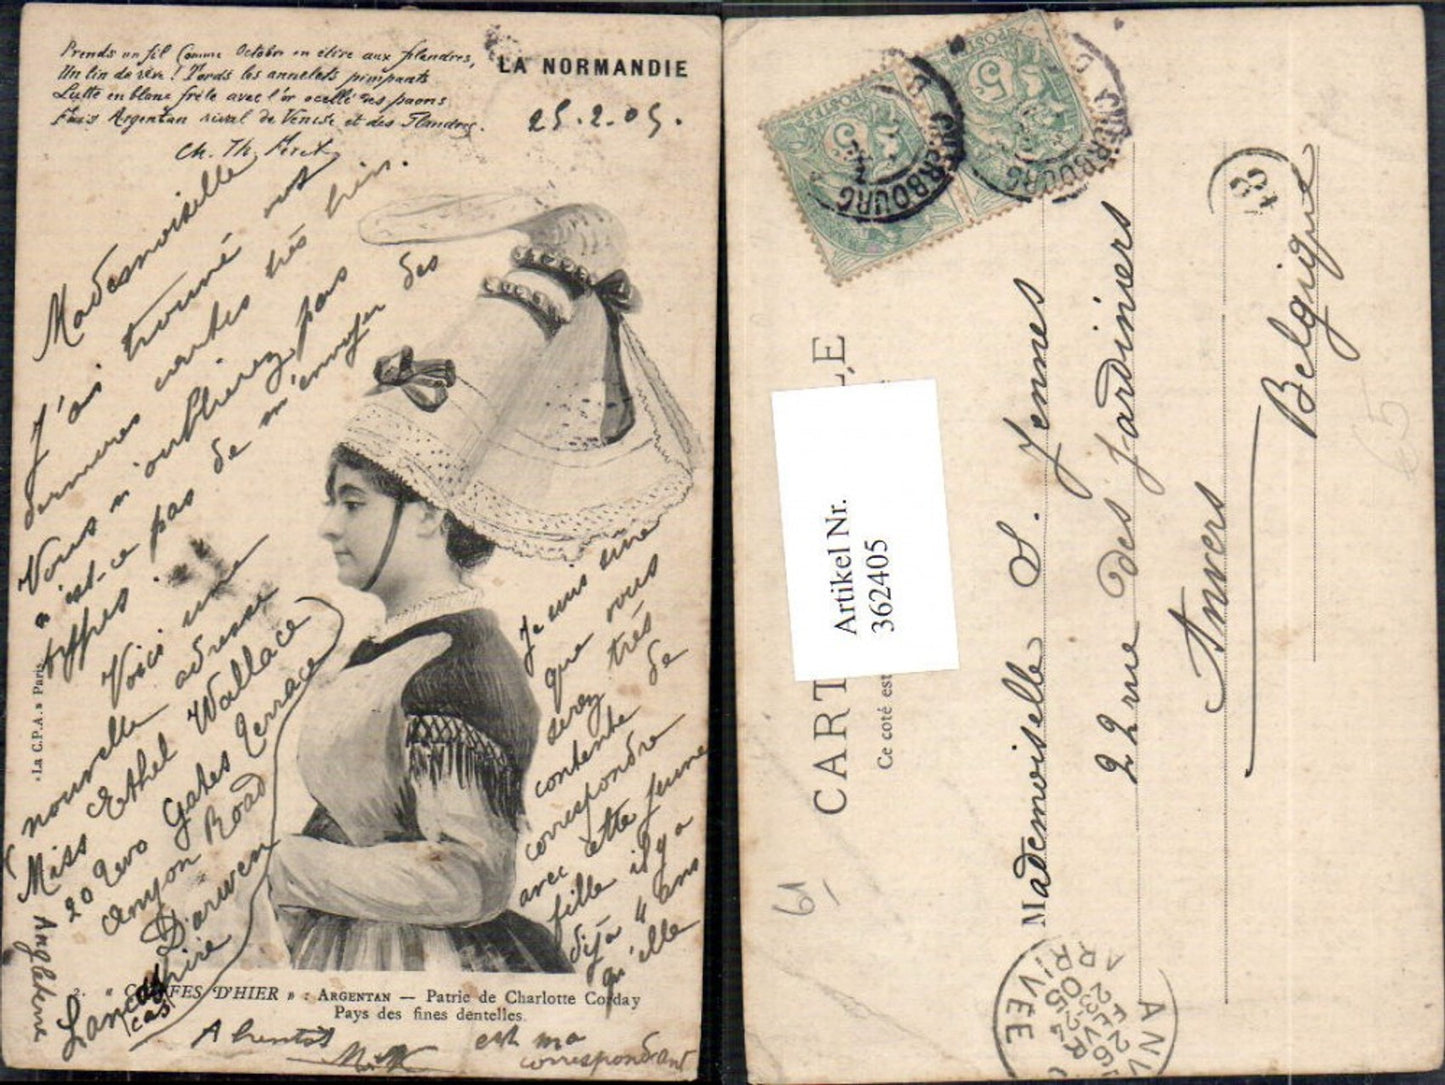 Prends un fil comme Octobre en étire aux filandres,
Un lin de rêve ! Tords les annelets pimpants
Lutte en blanc frêle avec l'or ocellé des paons
Fais Argentan rival de Venise et des Flandres.
Ch. Th. Féret
LA NORMANDIE
25.2.05.
Mademoiselle
J'ai trouvé vos
dernières cartes très bien.
Vous n'oublierez pas
n'est-ce pas de m'envoyer des
Voici une
nouvelle adresse
Miss Ethel Wallace
20 Two Gates Terrace
Road
Darwen
Lancashire
(cas)
Angleterre
Je suis sûre
que vous
serez très
contente de
correspondre
avec cette jeune
fille il y a
déjà 4 ans
qu'elle
est ma
correspondante
A bientôt
"La C.P.A." Paris
2. " COIFFES D'HIER " : ARGENTAN — Patrie de Charlotte Corday
Pays des fines dentelles.
CARTE
Ce coté est
Artikel Nr.
362405
POSTES
5
POSTES
5
CHERBOURG
CHERBOURG
Mademoiselle S. Jennes
22 rue des Jardiniers
Anvers
Belgique
61
65
ARRIVÉE